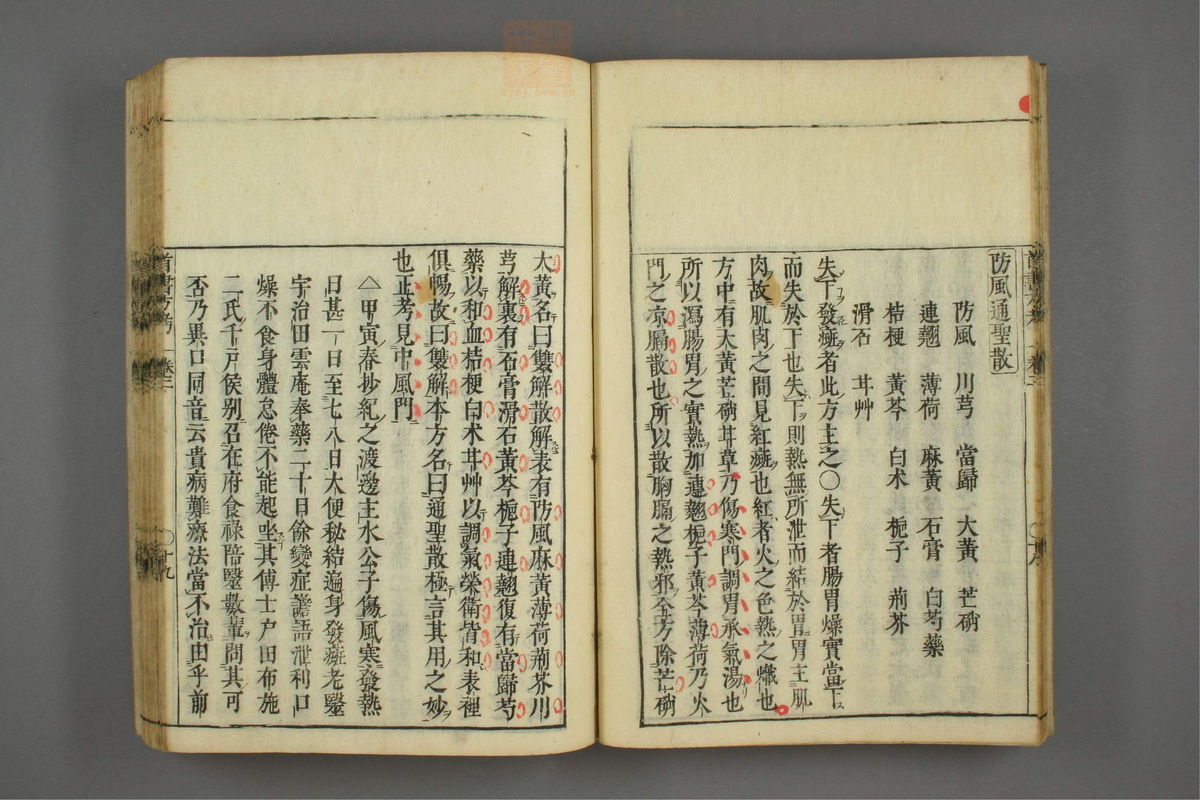 防風通聖散
防風 川芎 當歸 大黃 芒硝
連翹 薄荷 麻黃 石膏 白芍藥
桔梗 黃芩 白术 梔子 荊芥
滑石 甘艸
失下發癍者此方主之○失下者腸胃燥實當下
而失於下也失下則熱無所泄而結於胃胃主肌
肉故肌肉之間見紅癍也紅者火之色熱之熾也
方中有大黃芒硝甘草乃傷寒門調胃承氣湯也
所以瀉腸胃之實熱加連翹梔子黃芩薄荷乃火
門之凉膈散也所以散胸膈之熱邪全方除芒硝
大黃名曰雙解散解表有防風麻黃薄荷荊芥川
芎解裏有石膏滑石黃芩梔子連翹復有當歸芍
藥以和血桔梗白术甘艸以調氣榮衛皆和表裡
俱暢故曰雙解本方名曰通聖散極言其用之妙
也正考見中風門
△甲寅春抄紀之渡邊主水公子傷風寒發熱
日甚一日至七八日大便秘結遍身發癍老毉
宇治田雲庵奉藥二十日餘變症譫語泄利口
燥不食身體怠倦不能起坐其傅士戸田布施
二氏千戸侯別召在府食祿陪毉數輩問其可
否乃異口同音云貴病難療法當不治由乎前
卷三
○十九